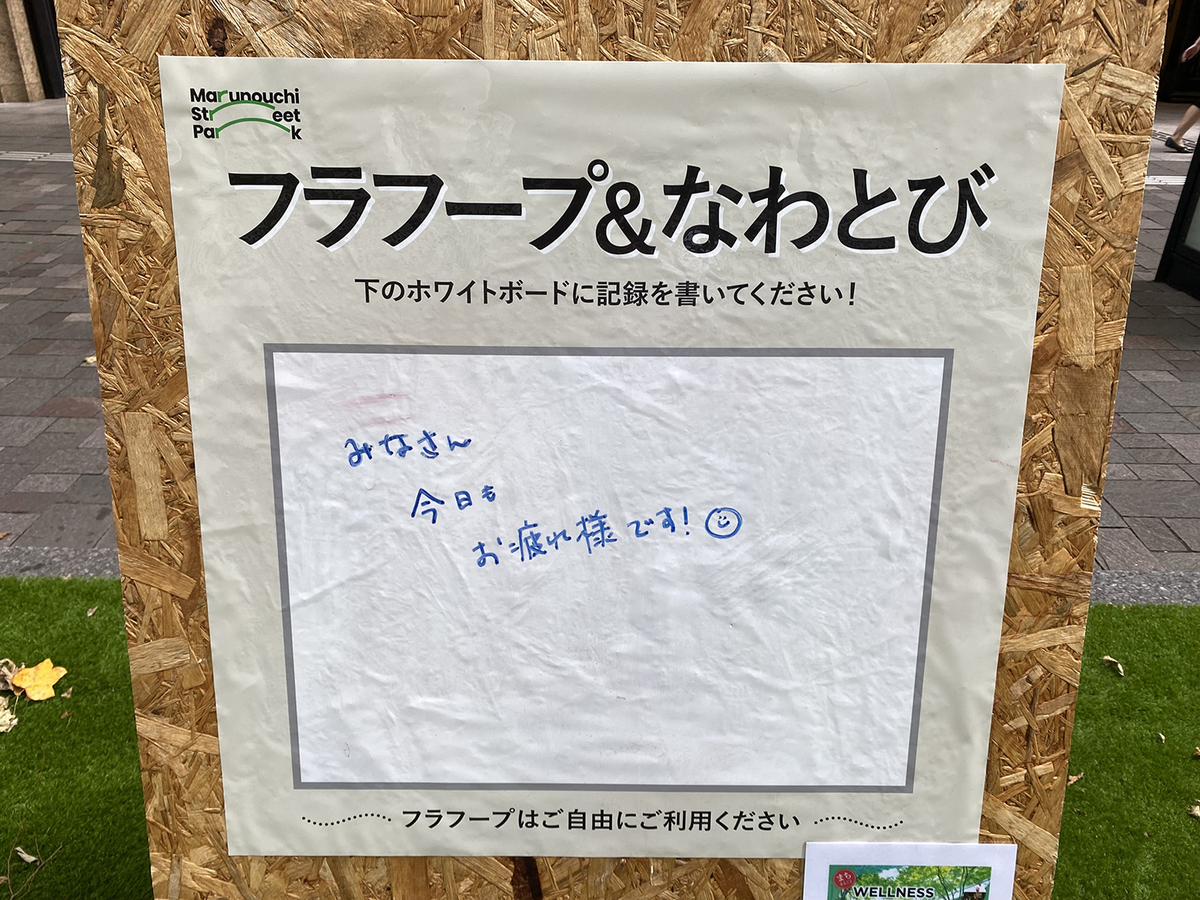 Marunouchi
Street
Park
フラフープ&なわとび
下のホワイトボードに記録を書いてください!
みなさん
今日も
お疲れ様です!
フラフープはご自由にご利用ください
まち
WELLNESS